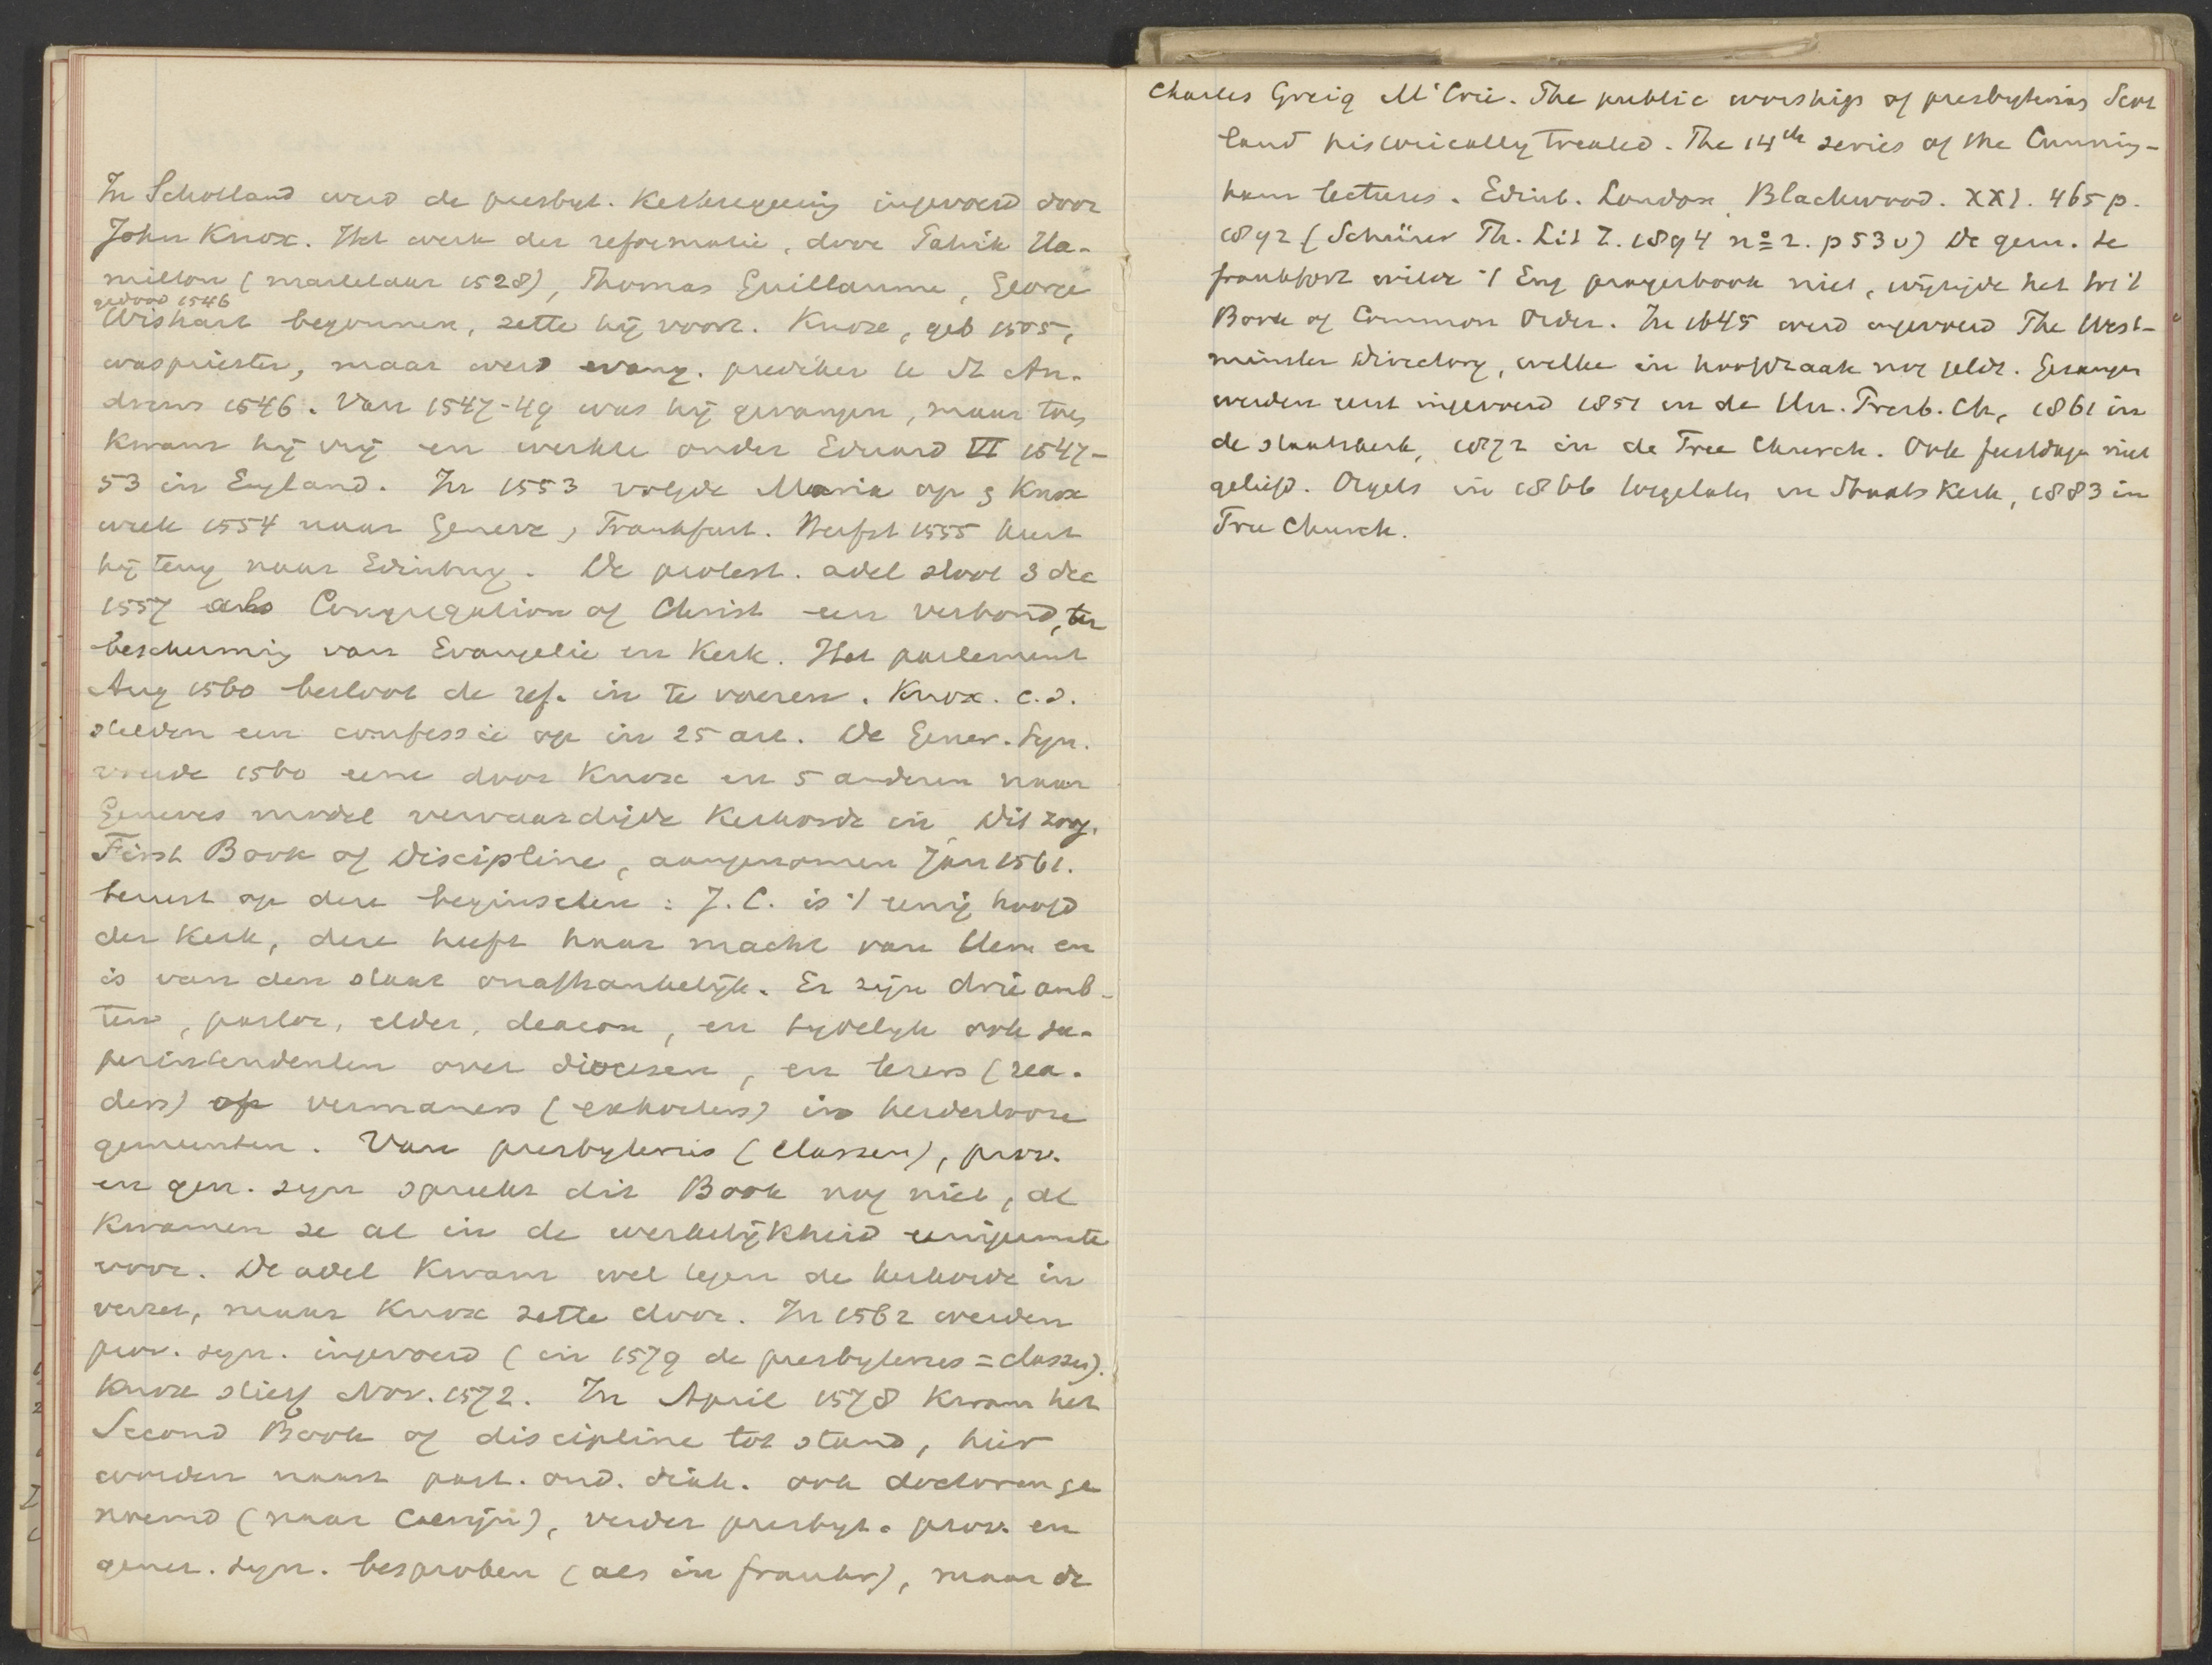 In Schotland werd de presbyt. Kerkregeering ingevoerd door
John Knox. Het werk der reformatie, door Patrik Ha-
milton (martelaar 1528), Thomas Guillaume, George
gedood 1546
Wishart begonnen, zette hij voort. Knox, geb 1505,
was priester, maar werd evang. prediker te St An-
drews 1546. Van 1547-49 was hij gevangen, maar toen
kwam hij vrij en werkte onder Eduard VI 1547-
53 in England. In 1553 volgde Maria op & Knox
week 1554 naar Geneve, Frankfurt. Herfst 1555 keert
hij terug naar Edinburg. De protest. adel sloot 3 dec
1557 als Congregation of Christ een verbond, ter
bescherming van Evangelie en Kerk. Het parlement
Aug 1560 besloot de ref. in te voeren. Knox. c.s.
stelden een confessie op in 25 art. De Gener. Syn.
voerde 1560 eene door Knox en 5 anderen naar
Geneves model vervaardigde Kerkorde in. Dit zoog.
First Book of Discipline, aangenomen Jan 1561.
berust op deze beginselen: J.C. is 't eenig hoofd
der Kerk, deze heeft haar macht van Hem en
is van den staat onafhankelijk. Er zijn drie amb-
ten, pastor, elder, deacon, en tijdelijk ook su-
perintendenten over diocesen, en lezers (rea-
ders) op vermaners (exhorters) in herderlooze
gemeenten. Van presbyteries (classen), prov.
en gen. syn spreekt dit Book nog niet, al
kwamen ze al in de werkelijkheid enigermate
voor. De adel kwam wel tegen de kerkorde in
verzet, maar Knox zette door. In 1562 werden
prov. syn. ingevoerd (in 1579 de presbyteries = classes).
Knox stierf Nov. 1572. In April 1578 kwam het
Second Book of discipline tot stand, hier
worden naast past. oud. diak. ook doctoren ge
noemd (naar Calvijn), verder presbyt. prov. en
gener. syn. besproken (als in frankr), maar de
Charles Greig M'Crie. The public worship of presbyterian Scot
land historically treated. The 14th series of the Cunning-
ham lectures. Edinb. London, Blackwood. XXI. 465 p.
1892 (Schürer Th. Lit Z. 1894 no 2. p 53 v) De gem. te
frankfort wilde 't Eng prayerbook niet, wijzigde het tot 't
Book of Common Order. In 1645 werd ingevoerd The West-
minster Directory, welke in hoofdzaak nog geldt. Gezangen
werden eerst ingevoerd 1851 in de Un. Presb. Ch, 1861 in
de staatskerk, 1872 in de Free Church. Ook feestdagen niet
geliefd. Orgels in 1866 toegelaten in Staats Kerk, 1883 in
Free Church.